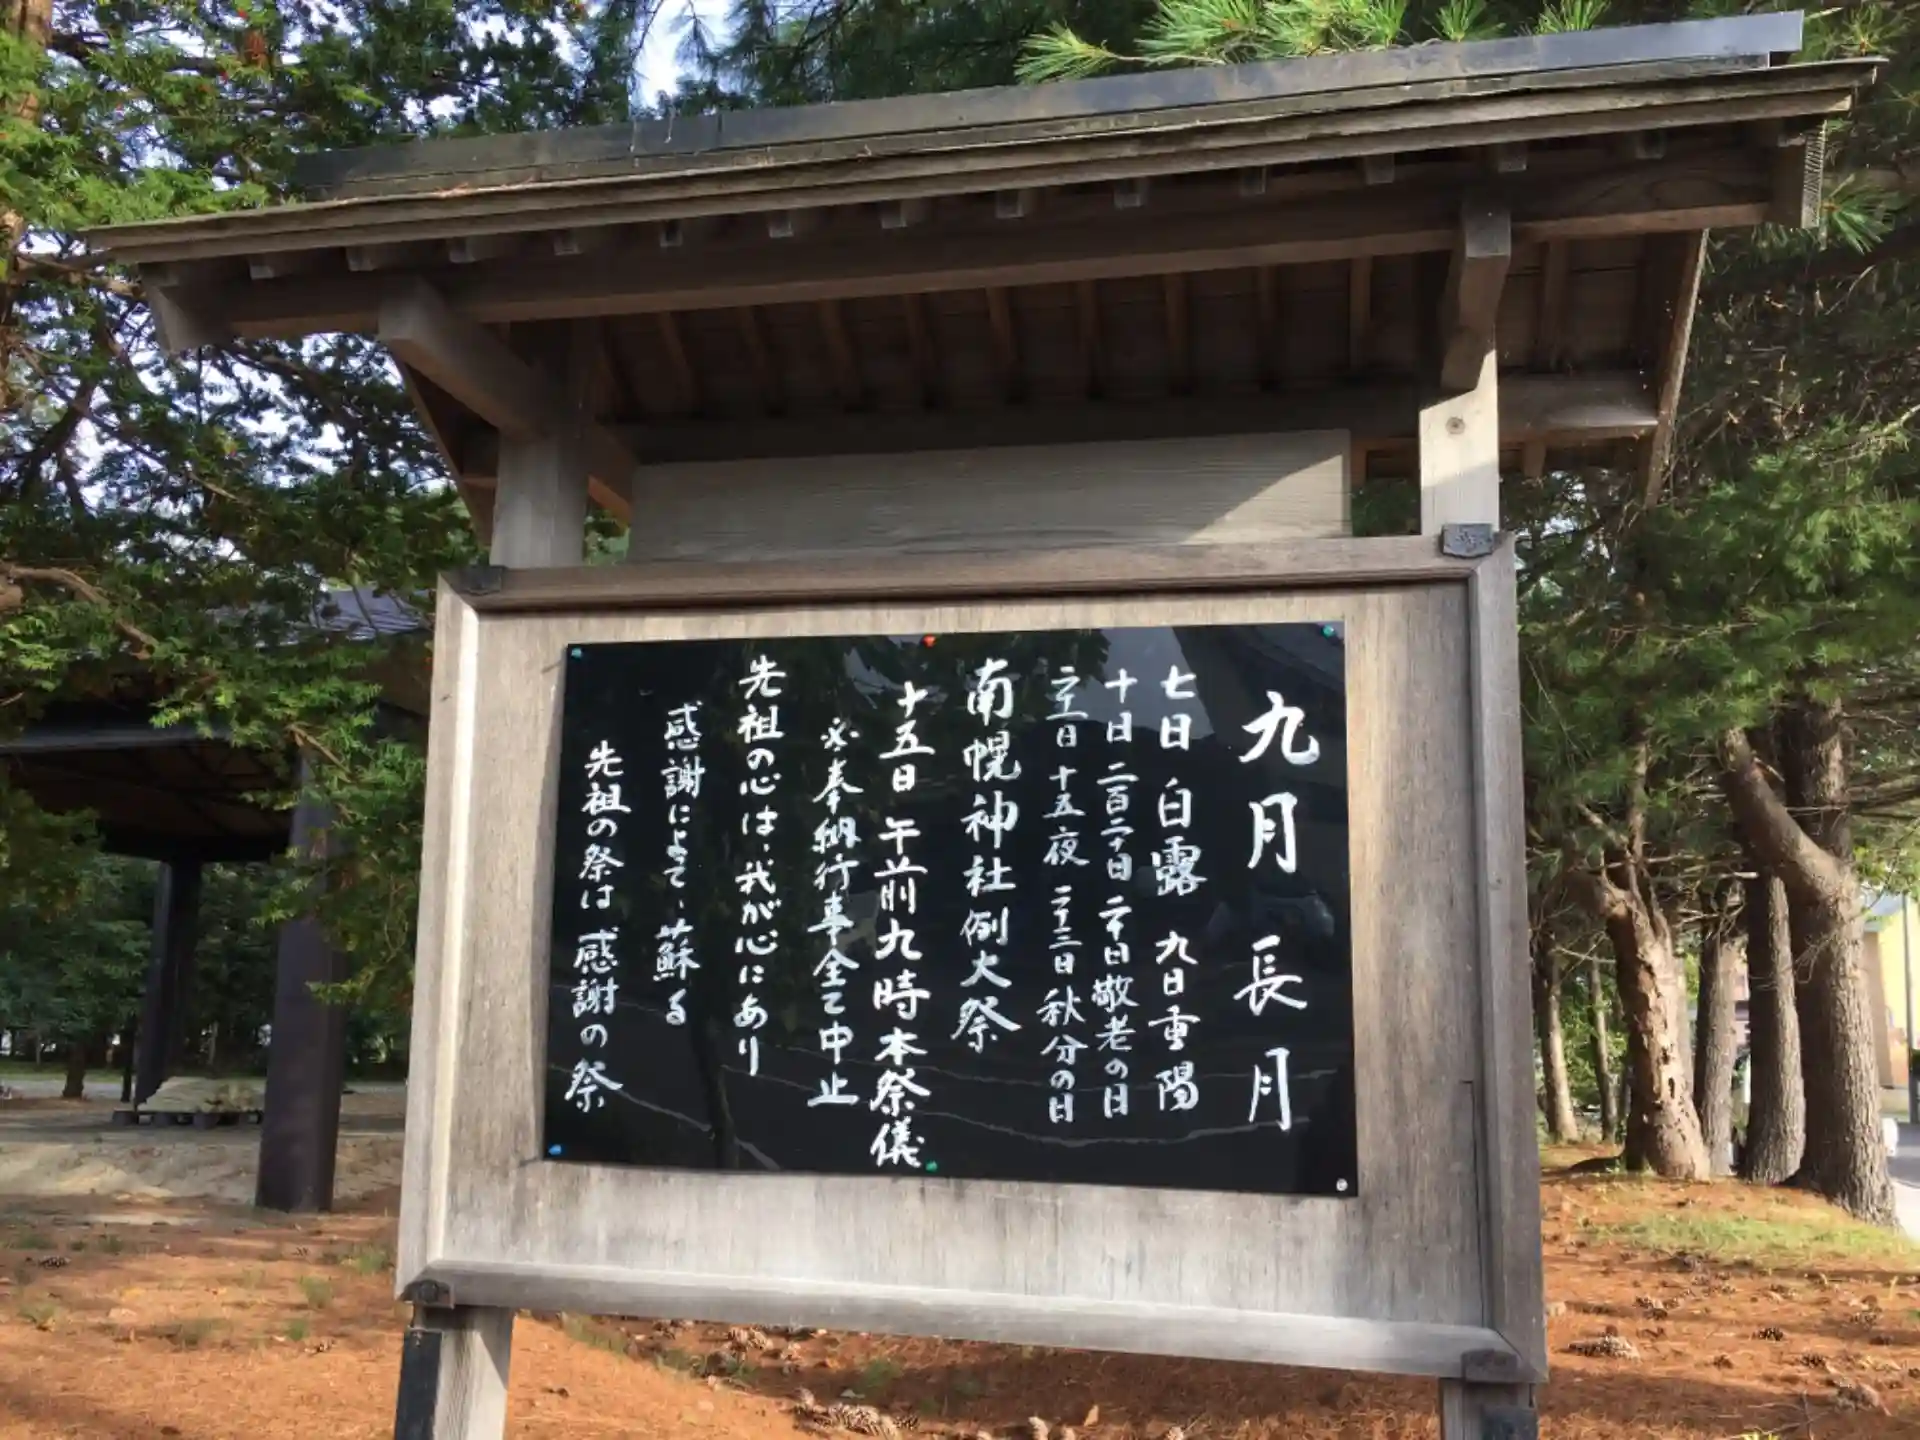 九月 長月
七日 白露 九日 重陽
十日 二百二十日 二十日 敬老の日
二十一日 十五夜 二十三日 秋分の日
南幌神社例大祭
十五日 午前九時 本祭儀
※奉納行事全て中止
先祖の心は、我が心にあり
感謝によって、蘇る
先祖の祭は 感謝の祭